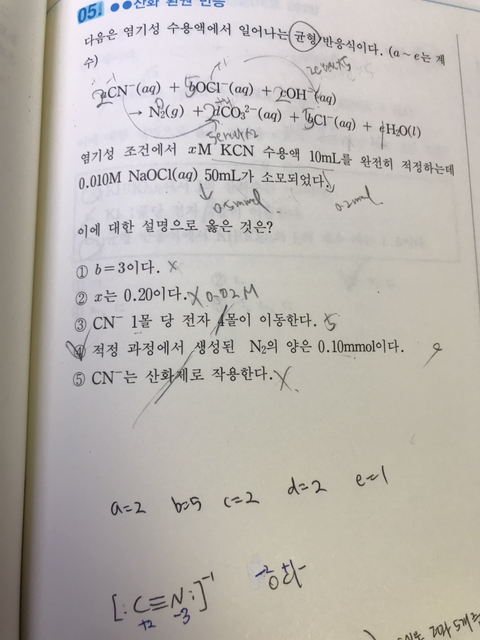 05. ●●산화 환원 반응
다음은 염기성 수용액에서 일어나는 균형 반응식이다. (a～e는 계
수)
aCN⁻(aq) + bOCl⁻(aq) + cOH⁻(aq)
→ N₂(g) + dCO₃²⁻(aq) + bCl⁻(aq) + eH₂O(l)
염기성 조건에서 xM KCN 수용액 10mL를 완전히 적정하는데
0.010M NaOCl(aq) 50mL가 소모되었다.
0.5mmol 0.2mmol
이에 대한 설명으로 옳은 것은?
① b=3이다. X
② x는 0.20이다. X 0.02M
③ CN⁻ 1몰 당 전자 4몰이 이동한다. 5
④ 적정 과정에서 생성된 N₂의 양은 0.10mmol이다.
⑤ CN⁻는 산화제로 작용한다. X
a=2 b=5 c=2 d=2 e=1
[:C≡N:]⁻¹
+2 -3